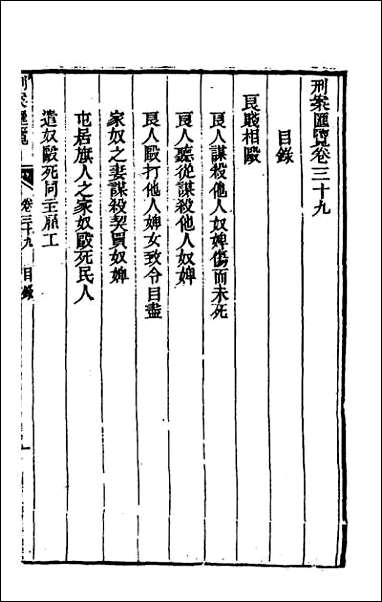 刑案匯覽卷三十九
目錄
良賤相毆
良人謀殺他人奴婢傷而未死
良人聽從謀殺他人奴婢
良人毆打他人婢女致令自盡
家奴之妻謀殺契買奴婢
屯居旗人之家奴毆死民人
遣奴毆死同主雇工
刑案匯覽 卷三十九 目錄